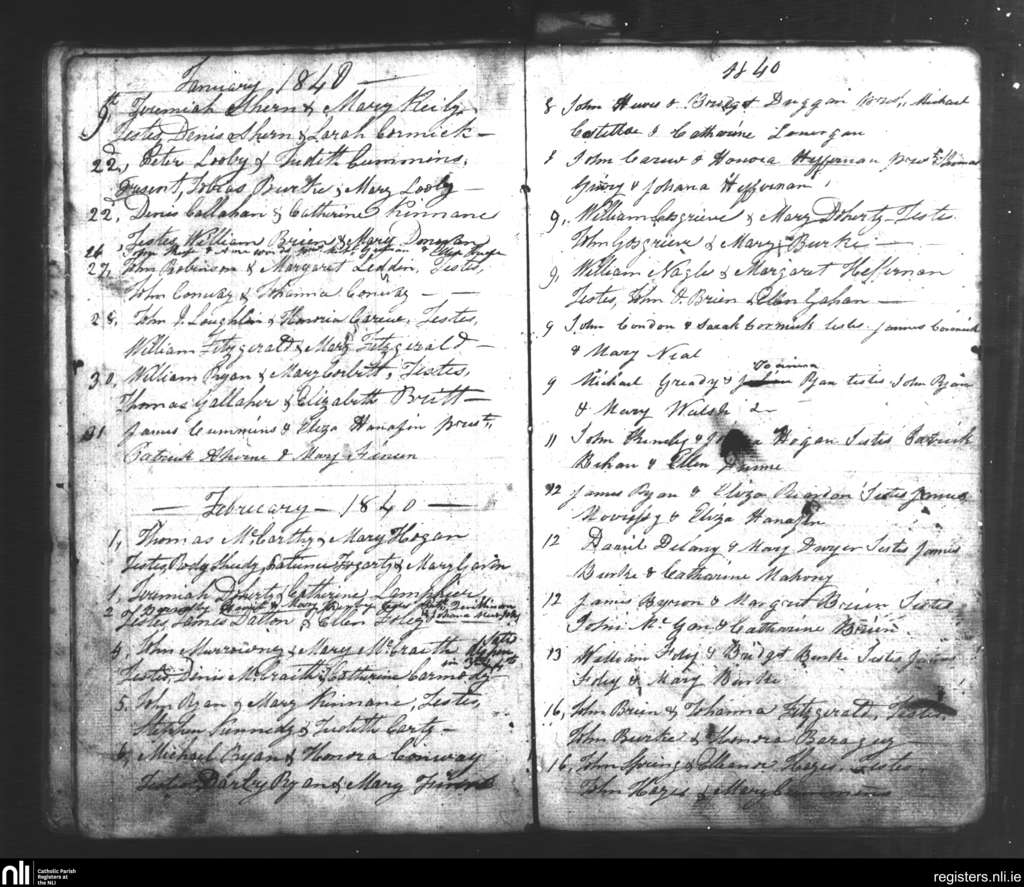 January 1840
9th Jeremiah Ahern & Mary Reily
Testes, Denis Ahern & Sarah Cormick
22d, Peter Looby & Judith Cummins,
Present, Tobias Burke & Mary Looby
22d, Denis Callahan & Catherine Kinnane
Testes, William Brien & Mary Donovan
26
27, John Robinson & Margaret Leddin, Testes,
John Conway & Johanna Conway
28, John J. Loughlin & Honoria Carew, Testes,
William Fitzgerald & Mary Fitzgerald
30, William Ryan & Mary Corbett, Testes,
Thomas Gallaher & Elizabeth Britt
31 James Cummins & Eliza Hanafin prest,
Patrick Aherne & Mary
February 1840
1, Thomas McCarthy & Mary Hogan
Testes, Rody Sheedy, Patience Fogarty & Mary Gavin
1, Jeremiah Doherty & Catherine Lonphier,
2
Testes, James Dalton & Ellen Foley
4, John & Mary McCraith
Testes, Denis McCraith & Catherine Carmody
5, John Ryan & Mary Kinnane, Testes,
Stephen Kennedy & Judith Carty
6, Michael Ryan & Honora Conway
Testes, Darby Ryan & Mary
1840
8 John Hewes & Bridget Duggan prest, Michael
Costelloe & Catherine Lonergan
8 John Carew & Honora Heffernan prest Thomas
& Johana Heffernan
9, William Cosgrieve & Mary Doherty Testes
John Cosgrieve & Mary Burke
9, William Nagle & Margaret Heffernan
Testes, John O Brien & Ellen Gahan
9 John Condon & Sarah Cormick testes James Cormick
& Mary Neal
Joanna
9 Michael Gready & Ryan testes John Ryan
& Mary Walsh
11 John & Hogan Testes Patrick
Behan & Ellen
12 James Ryan & Eliza Reardon Testes James
& Eliza Hanafin
12 Daniel Delany & Mary Dwyer Testes James
Burke & Catharine Mahony
12 James Byron & Margret Brien Testes
John McGan & Catharine Brien
13 William Foley & Bridget Burke Testes James
Foley & Mary Burke
16, John Brien & Johanna Fitzgerald, Testes,
John Burke & Honora
16, John Spring & Eleanor Hayes. Testes
John Hayes & Mary Cummins
nli
Catholic Parish
Registers at
the NLI
registers.nli.ie